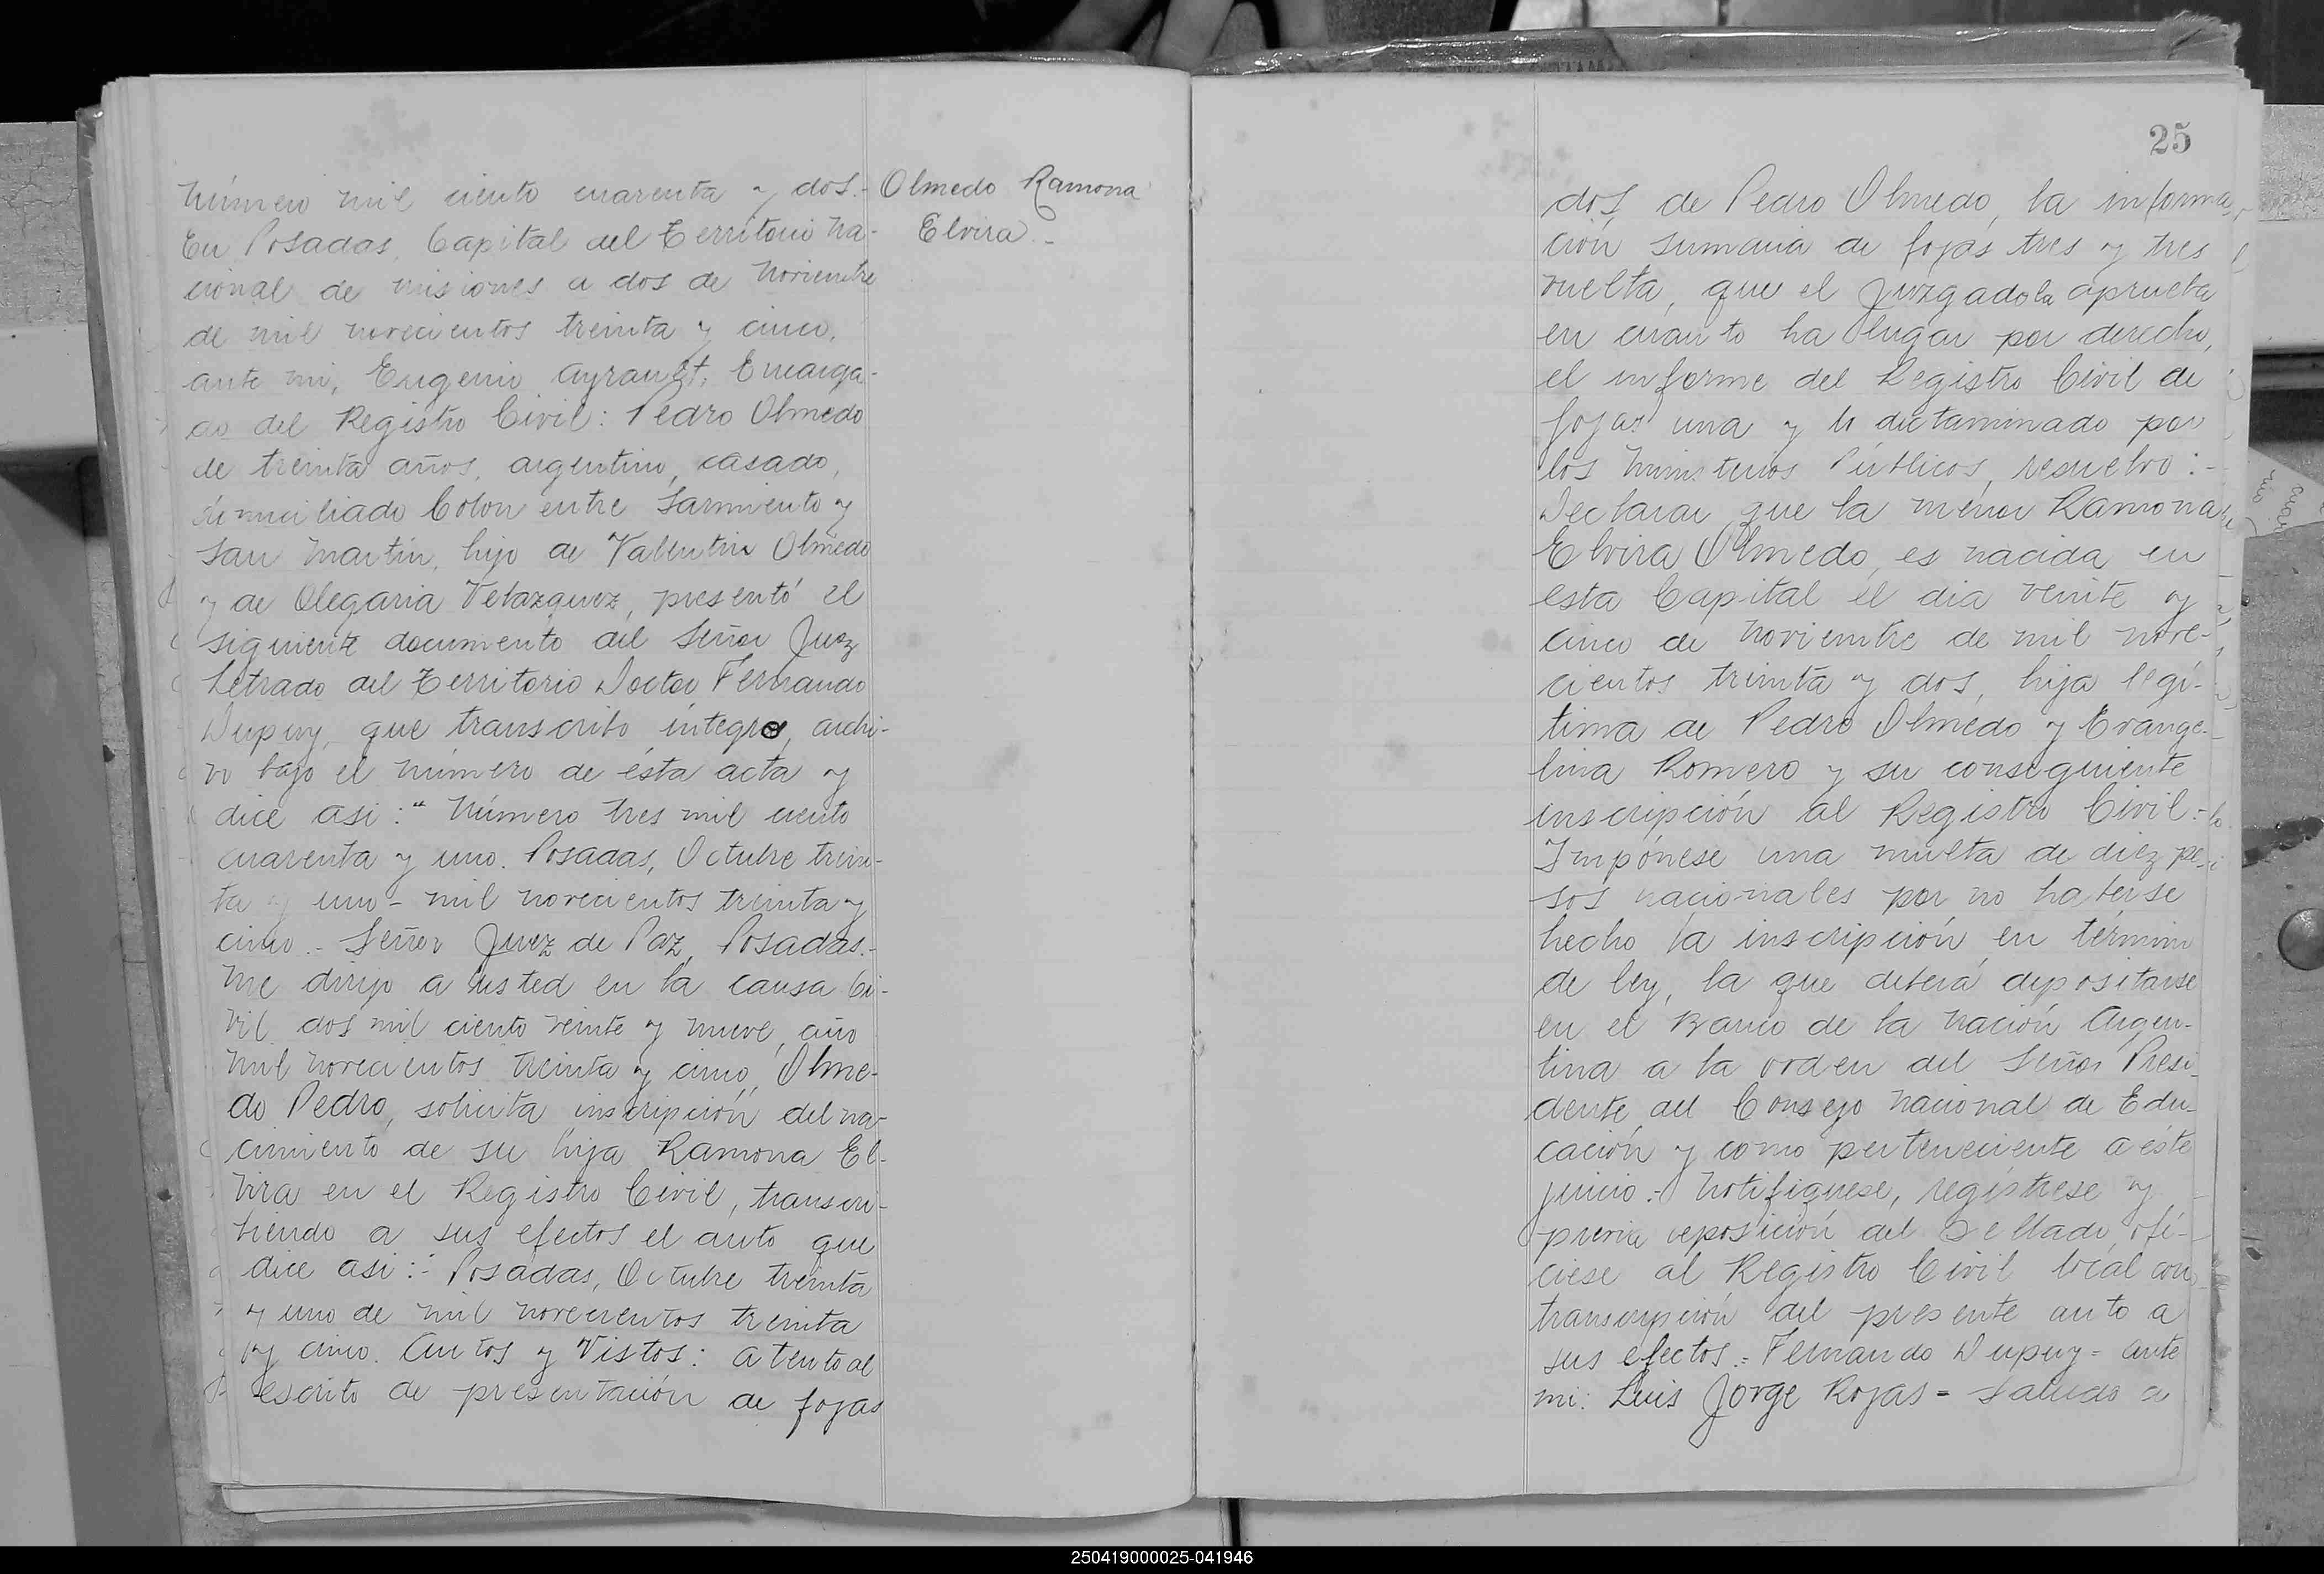 Número mil ciento cuarenta y dos.-
En Posadas, Capital del Territorio Na-
cional de Misiones a dos de Noviembre
de mil novecientos treinta y cinco,
ante mi, Eugenio Ayrault, Encarga-
do del Registro Civil: Pedro Olmedo
de treinta años, argentino, casado,
domiciliado Colon entre Sarmiento y
San Martin, hijo de Valentin Olmedo
y de Olegaria Velazquez, presentó el
siguiente documento del Señor Juez
Letrado del Territorio Doctor Fernando
Dupuy, que transcribo integro, archi-
vo bajo el número de ésta acta y
dice asi:" Número tres mil ciento
cuarenta y uno. Posadas, Octubre trein-
ta y uno - mil novecientos treinta y
cinco.- Señor Juez de Paz, Posadas.-
Me dirijo a usted en la causa Ci-
vil dos mil ciento veinte y nueve, año
mil novecientos treinta y cinco, Olme-
do Pedro, solicita inscripción del na-
cimiento de su hija Ramona El-
vira en el Registro Civil, transcri-
biendo a sus efectos el auto que
dice asi:- Posadas, Octubre treinta
y uno de mil novecientos treinta
y cinco. Autos y Vistos: Atento al
escrito de presentación de fojas
Olmedo Ramona
Elvira.-
25
dos de Pedro Olmedo, la informa-
ción sumaria de fojas tres y tres
vuelta, que el Juzgado la aprueba
en cuanto ha lugar por derecho,
el informe del Registro Civil de
fojas una y lo dictaminado por
los Ministerios Públicos, resuelvo:-
Declarar que la menor Ramona
Elvira Olmedo, es nacida en
esta Capital el dia veinte y
cinco de Noviembre de mil nove-
cientos treinta y dos, hija legí-
tima de Pedro Olmedo y Evange-
lina Romero y su consiguiente
inscripción al Registro Civil.-
Impónese una multa de diez pe-
sos nacionales por no haberse
hecho la inscripción en término
de ley, la que deberá depositarse
en el Banco de la Nación Argen-
tina a la orden del Señor Presi-
dente del Consejo Nacional de Edu-
cación y como perteneciente a éste
juicio.- Notifiquese, regístrese y
previa reposición del Sellado, ofí-
ciese al Registro Civil local con
transcripción del presente auto a
sus efectos.= Fernando Dupuy = Ante
mi: Luis Jorge Rojas = Saludo a
250419000025-041946